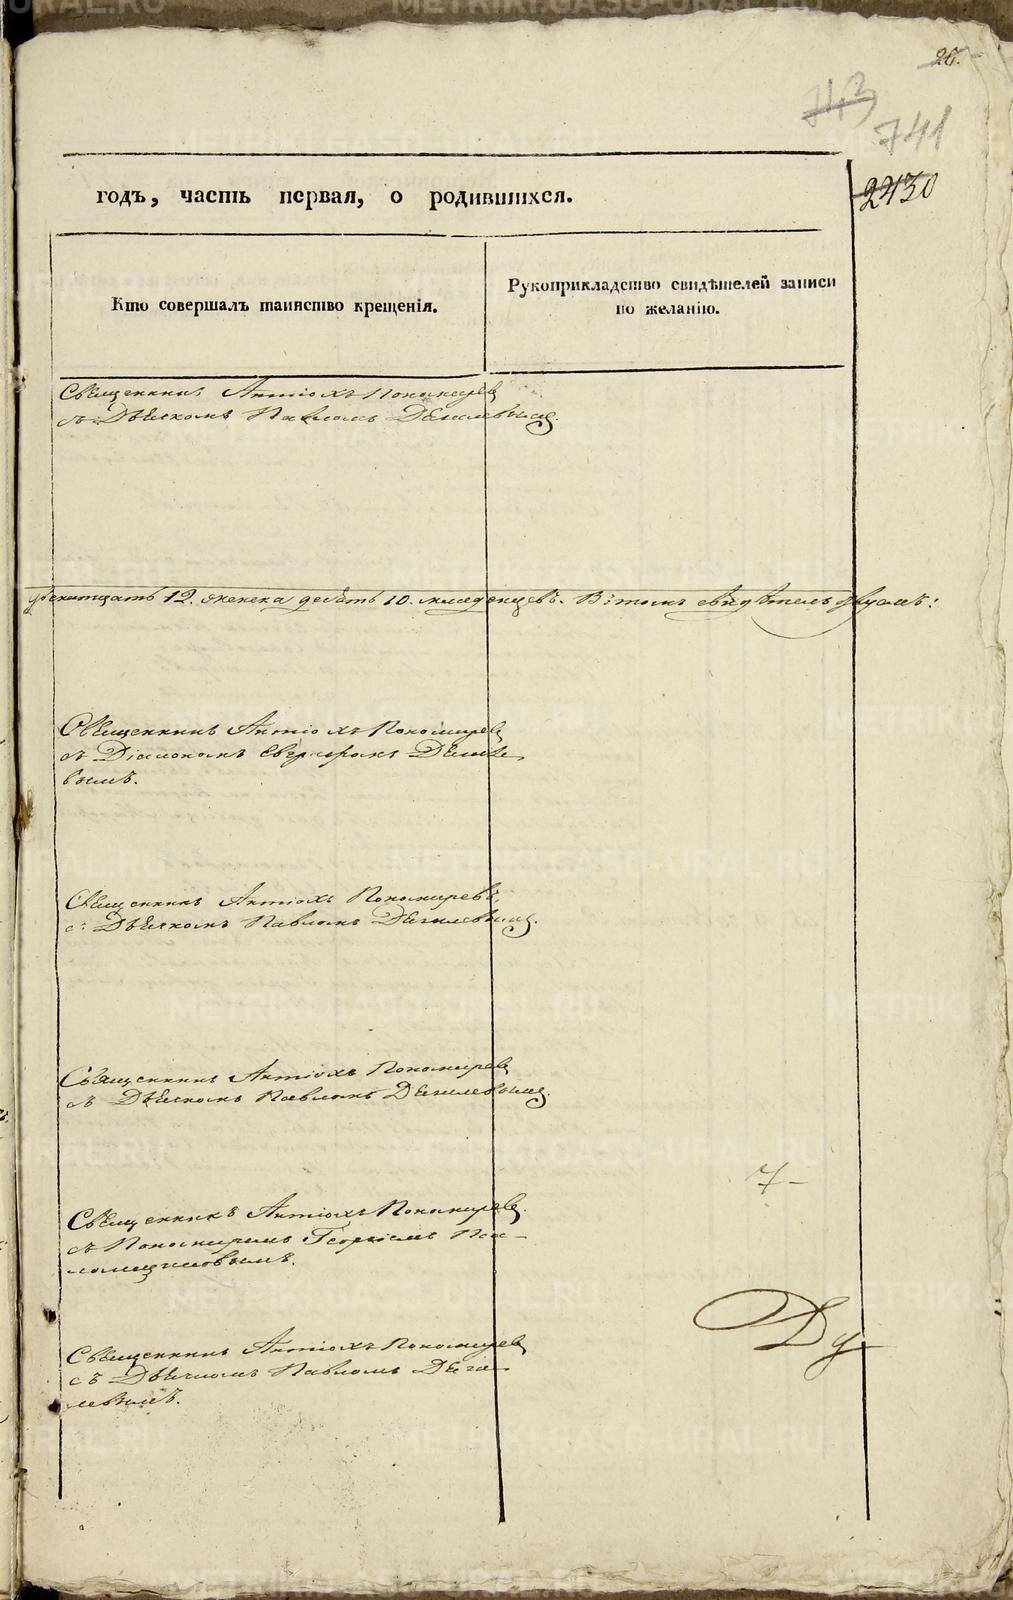 28.
743
741
2430
годъ, часть первая, о родившихся.
Кто совершалъ таинство крещенія.
Рукоприкладство свидѣтелей записи
по желанію.
Священникъ Антіохъ Пономарев
съ Дьячкомъ Павломъ Дѣгилевымъ.
12. женска десять 10. младенцевъ. В: томъ свидѣтельствуемъ:
Священникъ Антіохъ Пономарев
съ Діакономъ Евграфомъ
вымъ.
Священникъ Антіохъ Пономаревъ,
с: Дьячкомъ Павломъ Дѣгилевымъ.
Священникъ Антіохъ Пономарев
съ Дьячкомъ Павломъ Дѣгилевымъ.
Священникъ Антіохъ Пономарев.
съ Пономаремъ Георгіемъ Па-
ломщиковымъ.
7-
Ду
Священникъ Антіохъ Пономарев
съ Дьячкомъ Павломъ Дѣги-
левымъ.
METRIKI.GASO-URAL.RU